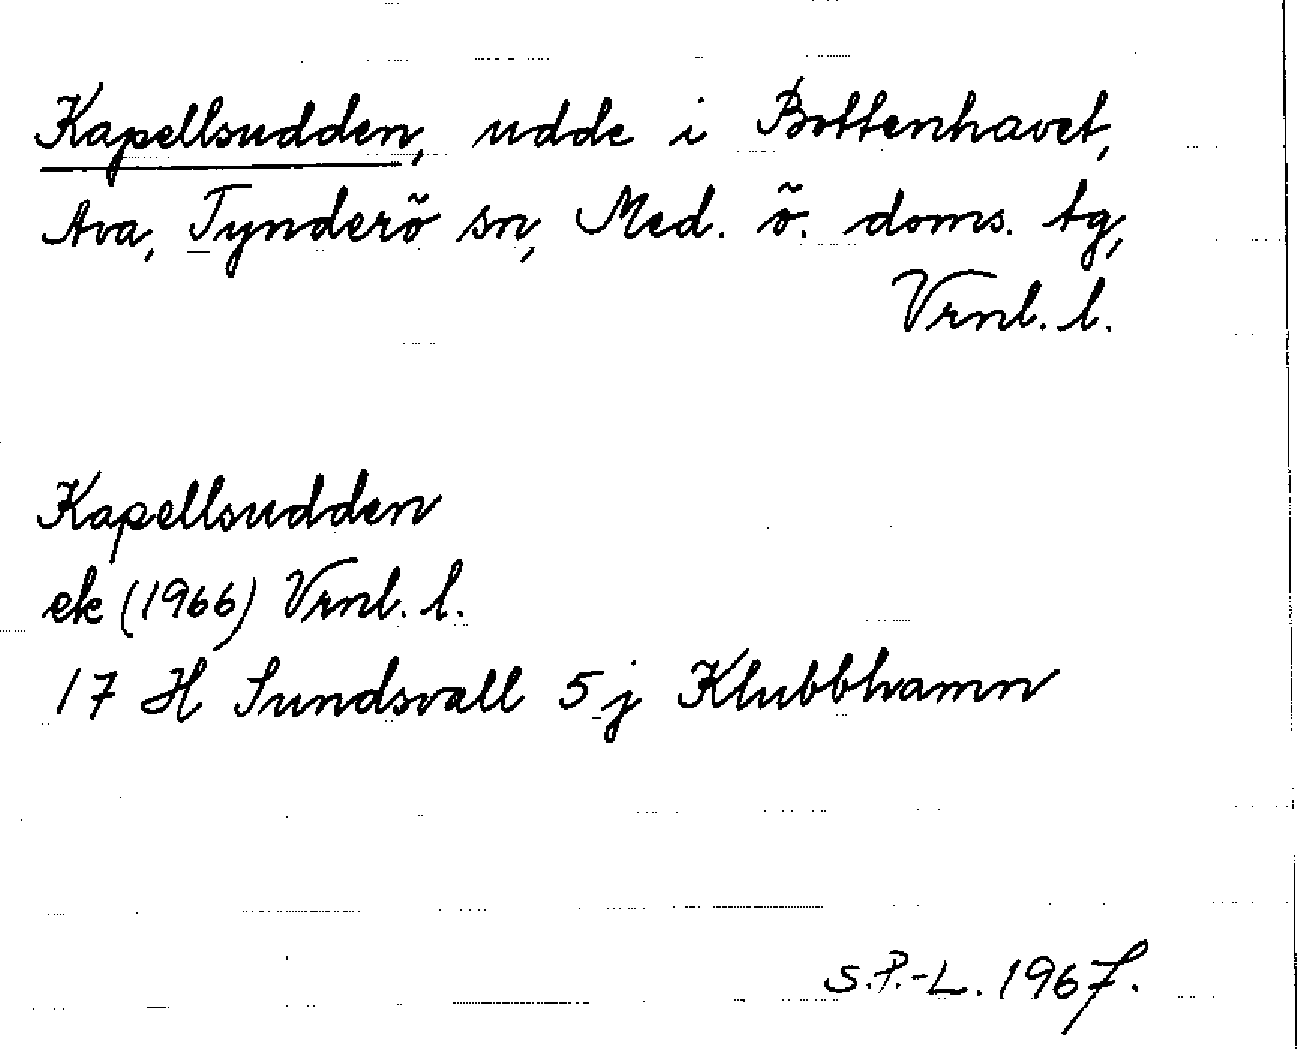 Kapellsudden, udde i Bottenhavet,
Åva, Tynderö sn, Med. ö. doms. tg,
Vrnl. l.
Kapellsudden
ek (1966) Vrnl. l.
17 H Sundsvall 5 j Klubbhamn
S.P.-L. 1967.